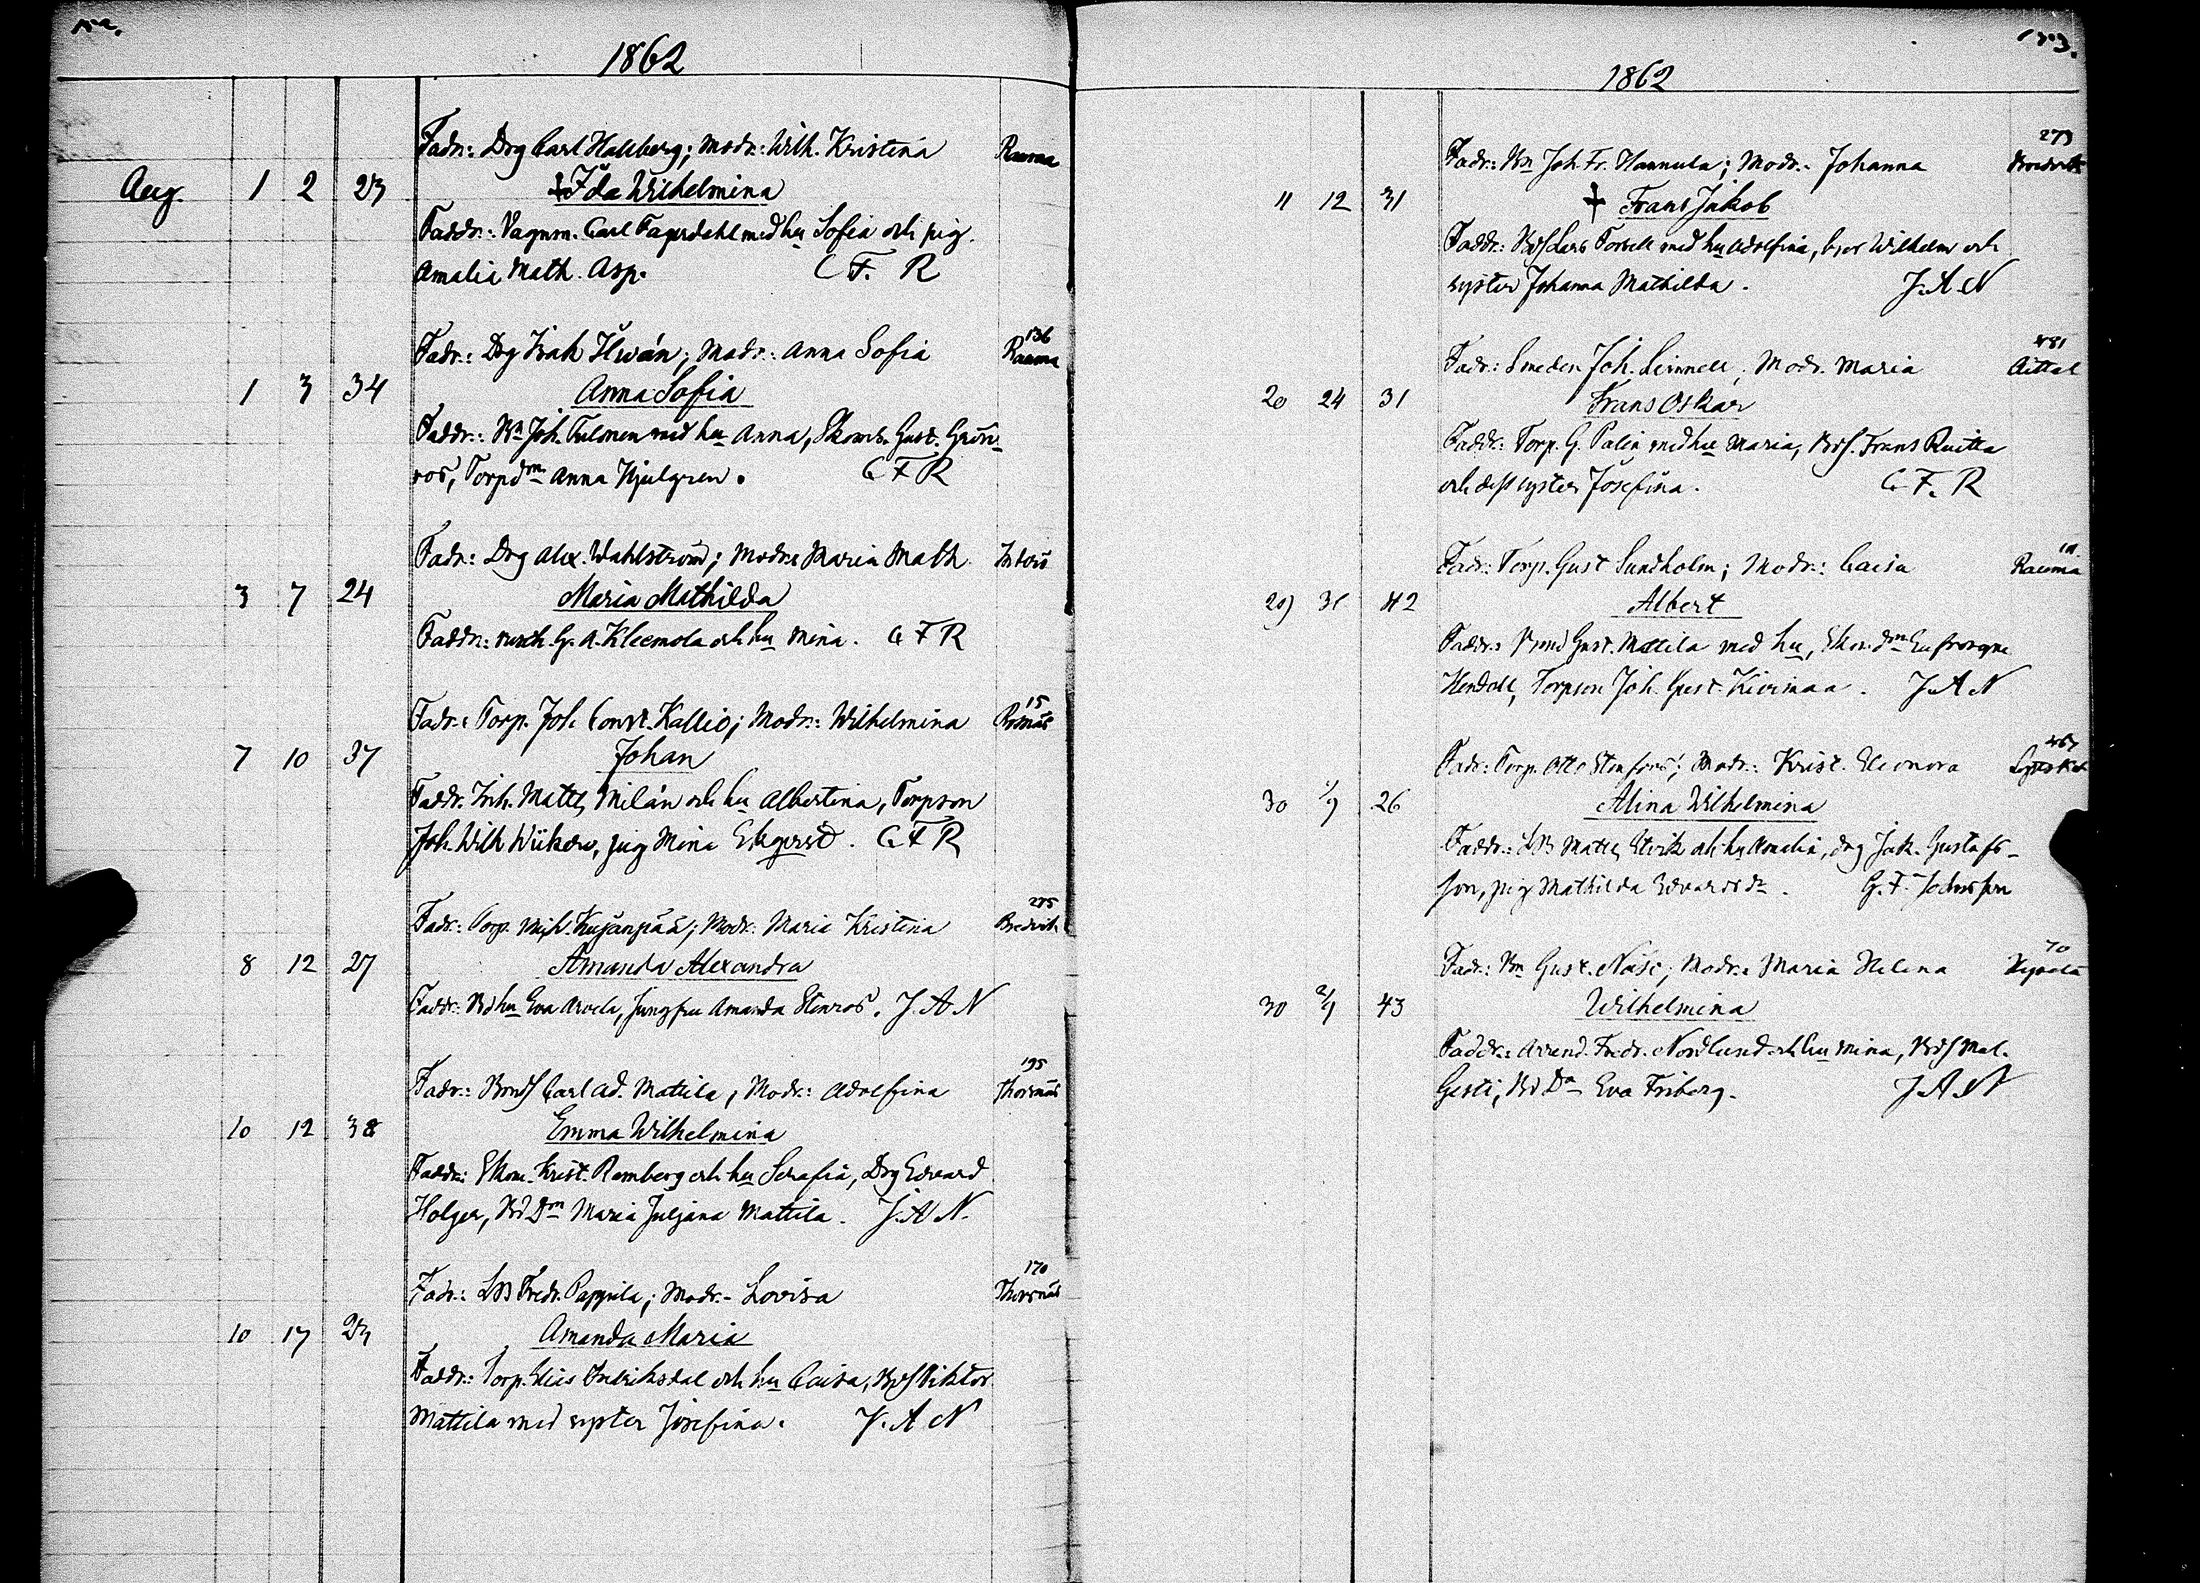 1862
Fadr.: Drg Carl Hallberg; Modr.: Wilh. Kristina Rauma
Aug. 1 2 23 † Ida Wilhelmina
Faddr.: Vagnm. Carl Fagerdahl med hu Sofia och pig.
Amalia Math. Asp. C F. R
136
Fadr.: Drg Isak Ilwán; Modr.: Anna Sofia Rauma
1 3 34 Anna Sofia
Faddr.: Bn Joh. Tulonen med hu Anna, Skom. Gust. Grön-
ros, Torpdn Anna Hjulgren. C F R
Fadr.: Drg Alex. Wahlström; Modr.: Maria Math.
3 7 24 Maria Mathilda
Faddr.: G. A. Kleemola och hu Mina. C F R
15
Fadr.: Torp. Joh. Const. Kallio; Modr.: Wilhelmina
7 10 37 Johan
Faddr. Inh. Matts Milán och hu Albertina, Torpson
Joh. Wilh. pig Mina Ekqvist. C F R
275
Fadr.: Torp. Mich. Kujanpää; Modr.: Maria Kristina Bredvik
8 12 27 Amanda Alexandra
Faddr.: Bd hu Eva Arvela, Jungfru Amanda Stenros. J. A N
195
Fadr.: Bondf Carl Ad. Mattila; Modr.: Adolfina Thorsnäs
10 12 38 Emma Wilhelmina
Faddr.: Skom. Krist. Ramberg och hu Serafia, Drg Edvard
Holger, Bd Dn Maria Juljana Mattila. J. A N.
170
Fadr.: LB Fredr. Pappila; Modr.- Lovisa Thorsnäs
10 17 23 Amanda Maria
Faddr.: Torp. Elias Fredriksdal och hu Caisa, Bdf Viktor
Mattila med syster Josefina. J. A N
1862
273
Fadr.: Bn Joh. Fr. Hannula; Modr.- Johanna
11 12 31 † Frans Jakob
Faddr.: Bdf Lars Torell med hu Adolfina, bror Wilhelm och
syster Johanna Mathilda. J. A N
Fadr.: Smeden Joh. Linnell; Modr. Maria
20 24 31 Frans Oskar
Faddr.: Torp. G. Palin med hu Maria, Bdf. Frans Ruitta
och dess syster Josefina. C F. R
Fadr.: Torp. Gust Sundholm; Modr.: Caisa Rauma
29 31 42 Albert
Faddr.: Gust. Mattila med hu, Skom. dn Eufrosyne
Torpson Joh. Gust. Kivimaa. J A N
Fadr.: Torp. Otto Stenfors; Modr.: Krist. Eleonora
30 1/9 26 Alina Wilhelmina
Faddr.: LB Matts Strik och hu Amalia, drg Jak. Gustafs-
son, pig Mathilda Edvardsdr. G. F.
70
Fadr.: Bn Gust. Näsi; Modr.: Maria Helena
30 2/9 43 Wilhelmina
Faddr.: Arrend. Fredr. Nordlund och hu Mina, Bdf Mat.
Gesti, Bd Dn Eva Friberg. J A N